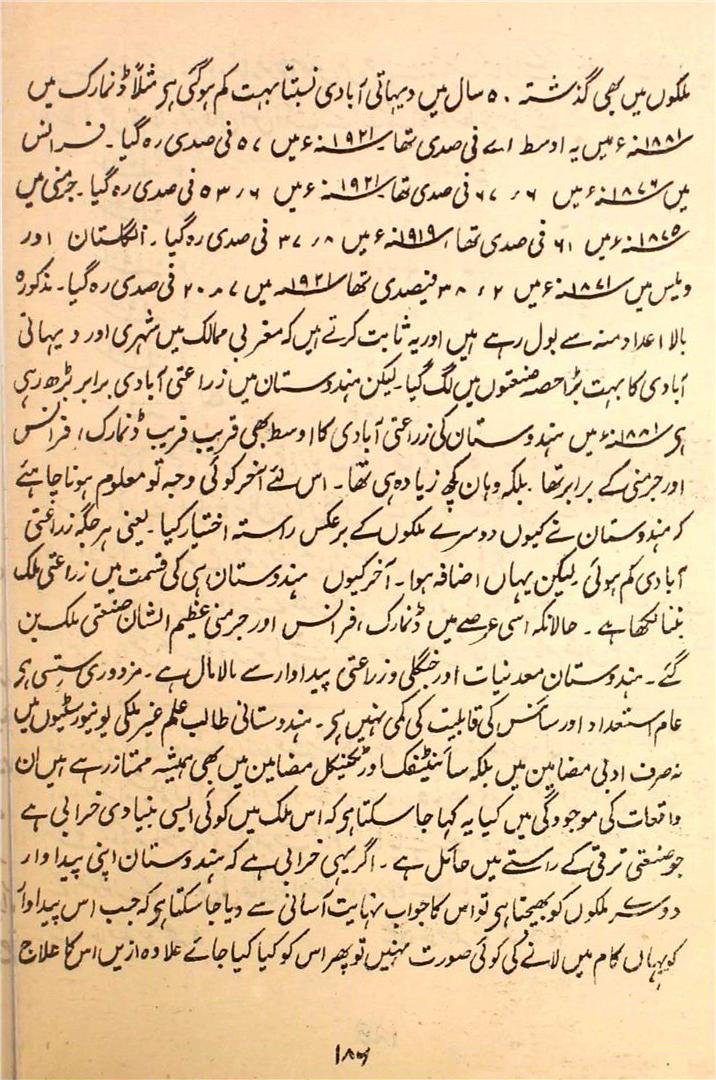 ملکوں میں بھی گذشتہ ۵۰ سال میں دیہاتی آبادی نسبتاً بہت کم ہوگئی ہر مثلاً ڈنمارک میں
۱۸۸۱ء میں یہ اوسط ۷۱ فی صدی تھا ۱۹۲۱ء میں ۵۷ فی صدی رہ گیا۔ فرانس
میں ۱۸۷۶ء میں ۶ء۶۷ فی صدی تھا ۱۹۲۱ء میں ۶ء۵۳ فی صدی رہ گیا۔ جرمنی میں
۱۸۷۵ء میں ۶۱ فی صدی تھا، ۱۹۱۹ء میں ۸ء۳۷ فی صدی رہ گیا۔ انگلستان اور
ویلس میں ۱۸۷۱ء میں ۲ء۳۸ فیصدی تھا ۱۹۲۱ء میں ۷ء۲۰ فی صدی رہ گیا۔ مذکورہ
بالا اعداد منہ سے بول رہے ہیں اور یہ ثابت کرتے ہیں کہ مغربی ممالک میں شہری اور دیہاتی
آبادی کا بہت بڑا حصہ صنعتوں میں لگ گیا۔ لیکن ہندوستان میں زراعتی آبادی برابر بڑھ رہی
ہر ۱۸۸۱ء میں ہندوستان کی زراعتی آبادی کا اوسط بھی قریب قریب ڈنمارک، فرانس
اور جرمنی کے برابر تھا۔ بلکہ وہاں کچھ زیادہ ہی تھا۔ اس لئے آخر کوئی وجہ تو معلوم ہونا چاہئے
کہ ہندوستان نے کیوں دوسرے ملکوں کے برعکس راستہ اختیار کیا۔ یعنی ہر جگہ زراعتی
آبادی کم ہوئی لیکن یہاں اضافہ ہوا۔ آخر کیوں ہندوستان ہی کی قسمت میں زراعتی ملک
بننا لکھا ہے۔ حالانکہ اسی عرصے میں ڈنمارک، فرانس اور جرمنی عظیم الشان صنعتی ملک بن
گئے۔ ہندوستان معدنیات اور جنگلی و زراعتی پیداوار سے مالا مال ہے۔ مزدوری سستی ہر
عام استعداد اور سائنس کی قابلیت کی کمی نہیں ہر۔ ہندوستانی طالب علم غیر ملکی یونیورسٹیوں میں
نہ صرف ادبی مضامین میں بلکہ سائنٹیفک اور ٹکنیکل مضامین میں بھی ہمیشہ ممتاز رہے ہیں ان
واقعات کی موجودگی میں کیا یہ کہا جا سکتا ہر کہ اس ملک میں کوئی ایسی بنیادی خرابی ہے
جو صنعتی ترقی کے راستے میں حائل ہے۔ اگر یہی خرابی ہے کہ ہندوستان اپنی پیداوار
دوسرے ملکوں کو بھیجتا ہر تو اس کا جواب نہایت آسانی سے دیا جا سکتا ہر کہ جب اس پیداوار
کو یہاں کام میں لانے کی کوئی صورت نہیں تو پھر اس کو کیا کیا جائے علاوہ ازیں اس کا علاج
۱۸۶